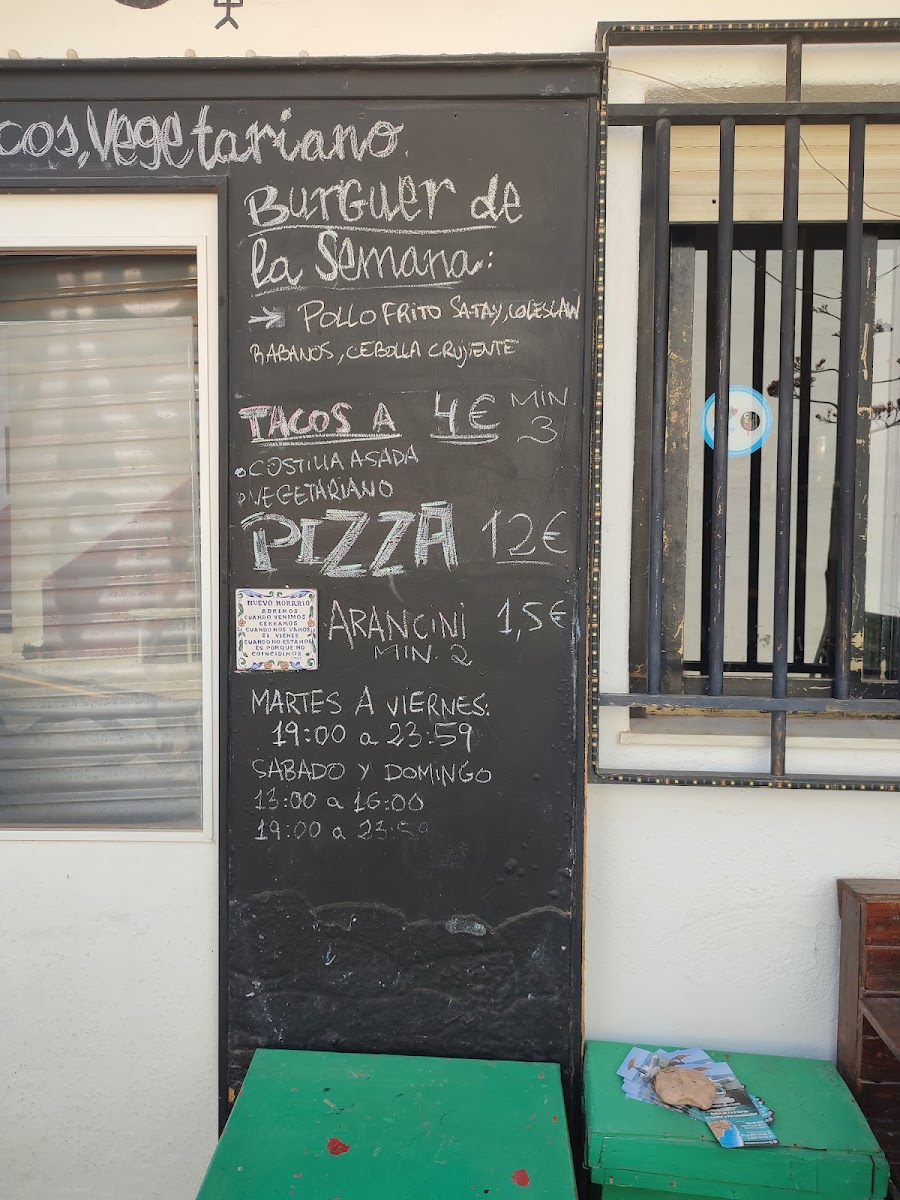 cos, Vegetariano.
Burguer de
la Semana:
→ POLLO FRITO SATAY, COLESLAW
RABANOS, CEBOLLA CRUJIENTE
TACOS A 4€ MIN 3
• COSTILLA ASADA
• VEGETARIANO
PIZZA 12€
NUEVO HORARIO
ABRIMOS
CUANDO VENIMOS
CERRAMOS
CUANDO NOS VAMOS
SI VIENES
CUANDO NO ESTAMOS
ES PORQUE NO
COINCIDIMOS
ARANCINI 1,5€
MIN. 2
MARTES A VIERNES:
19:00 a 23:59
SABADO Y DOMINGO
13:00 a 16:00
19:00 a 23:59